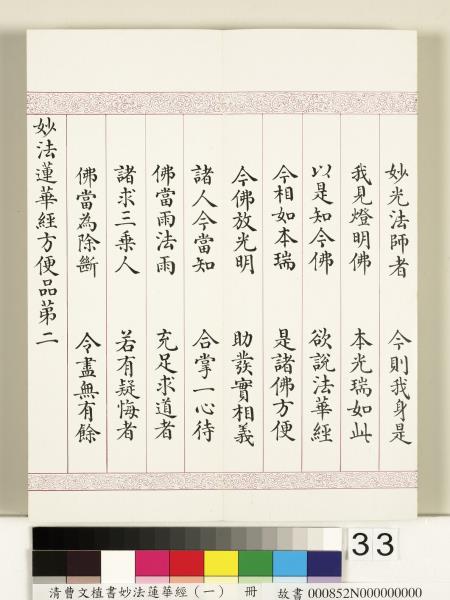 妙光法師者　今則我身是
我見燈明佛　本光瑞如此
以是知今佛　欲說法華經
今相如本瑞　是諸佛方便
今佛放光明　助發實相義
諸人今當知　合掌一心待
佛當雨法雨　充足求道者
諸求三乘人　若有疑悔者
佛當為除斷　令盡無有餘
妙法蓮華經方便品第二
33
清曹文植書妙法蓮華經（一）　冊　故書 000852N000000000